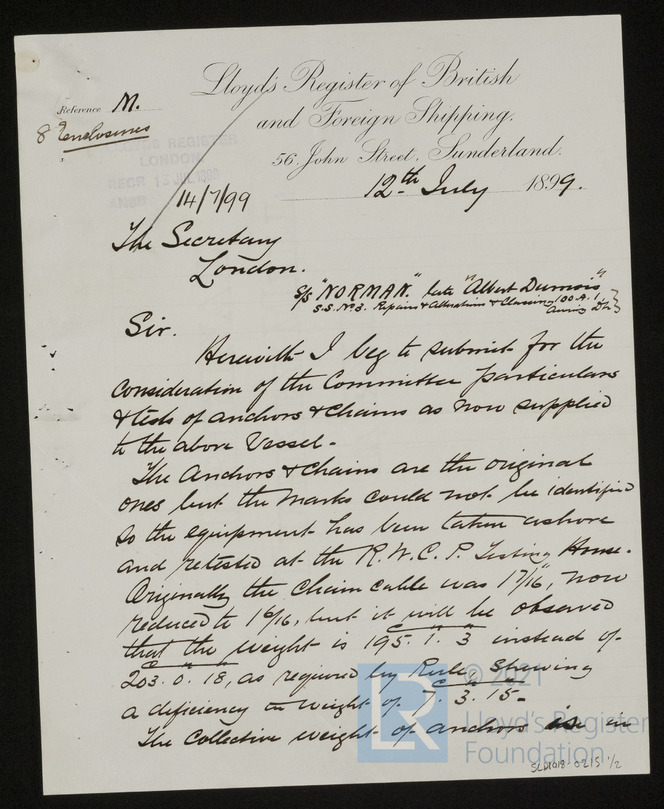 Lloyd's Register of British
and Foreign Shipping.
Reference M.
8 Enclosures
56, John Street, Sunderland.
LLOYDS REGISTER
LONDON
14/7/99
12th July 1899.
The Secretary
London.
S/S "NORMAN." late "Albert Dumois"
S.S. No 3. Repairs & Alteration & Classing 100 A.1
Sir.
Herewith I beg to submit for the
consideration of the Committee particulars
& tests of anchors & chains as now supplied
to the above Vessel.-
The Anchors & Chains are the original
ones but the marks could not be identified
So the equipment has been taken ashore
and retested at the R.W.C.P. Testing House.
Originally the Chain cable was 1 7/16", now
reduced to 1 6/16, but it will be observed
that the weight is 195. 1. 3 instead of
203. 0. 18, as required by Rule, Shewing
a deficiency in weight of 7. 3. 15-
The Collective weight of anchors is in
© 2021
Lloyd's Register
Foundation
LR
1/2